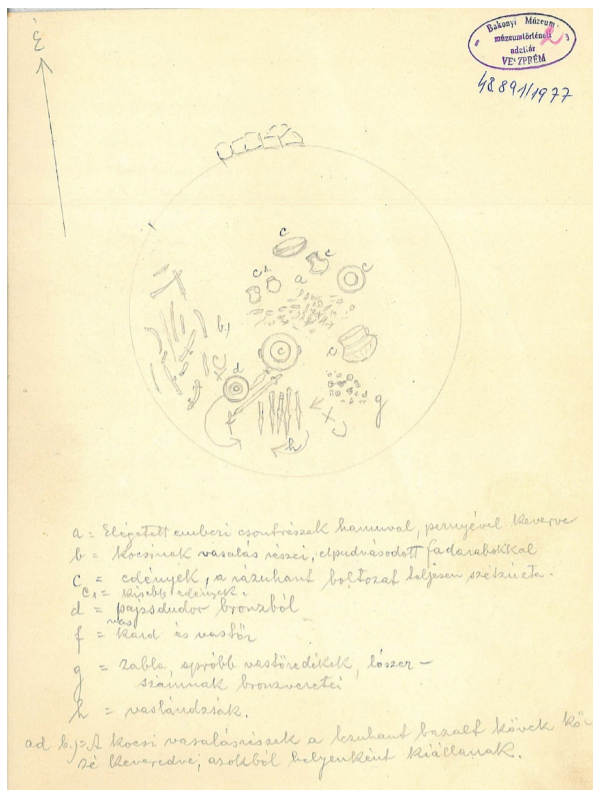 É
Bakonyi Múzeum
múzeumtörténeti
adattár
VESZPRÉM
48891/1977
c
c
c
c1
a
b)
c
c
d
g
f
h
a = Elégetett emberi csontrészek hamuval, pernyével keverve
b = Kocsinak vasalás részei, elpudvásodott fadarabokkal
c = edények, a rázuhant boltozat teljesen szétzúzta.
c1 = kisebb edények.
d = pajzsdudor bronzból
vas
f = kard és vastőr
g = zabla, apróbb vastöredékek, lószer-
számnak bronzveretei
h = vaslándzsák.
ad b.) = A kocsi vasalásrészek a lezuhant bazalt kövek kö-
zé keveredve, azokból helyenként kiállanak.